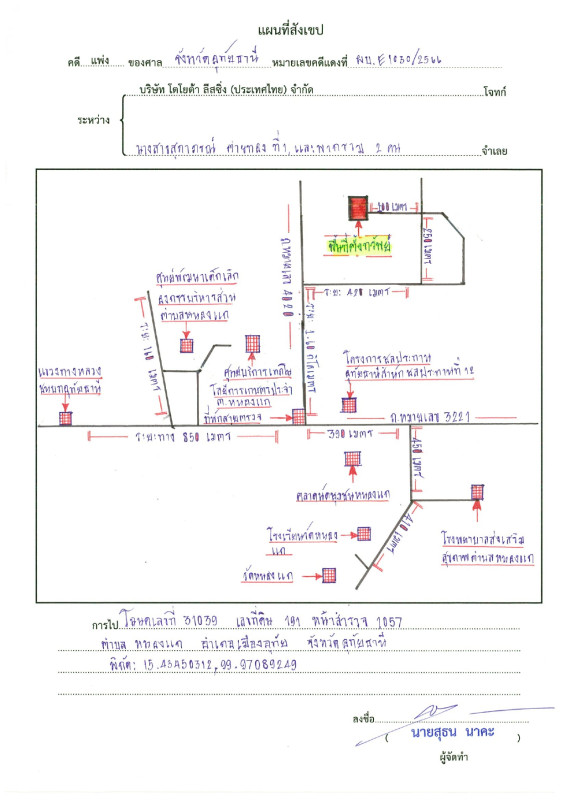 แผนที่สังเขป
คดี แพ่ง ของศาล จังหวัดอุทัยธานี หมายเลขคดีแดงที่ ผบ.E1030/2566
บริษัท โตโยต้า ลีสซิ่ง (ประเทศไทย) จำกัด โจทก์
ระหว่าง
นางสาวสุภาภรณ์ ที่1, และพวกรวม 2 คน จำเลย
100 เมตร
ที่ตั้งทรัพย์
250 เมตร
ถ.หมายเลข
ระยะ 420 เมตร
ระยะ 1.60 กิโลเมตร
ศูนย์พัฒนาเด็กเล็ก
องค์การบริหารส่วน
ตำบลหนองแก
ระยะ 160 เมตร
แขวงทางหลวง
ชนบทอุทัยธานี
ศูนย์บริการเทคโน
โลยีการเกษตรประจำ
ต.หนองแก
ที่พักสายตรวจ
โครงการชลประทาน
อุทัยธานีสำนักชลประทานที่ 12
ถ.หมายเลข 3221
ระยะทาง 850 เมตร
390 เมตร
450 เมตร
ตลาดนัดชุมชนหนองแก
410 เมตร
โรงเรียนวัดหนอง
แก
วัดหนองแก
โรงพยาบาลส่งเสริม
สุขภาพตำบลหนองแก
การไป โฉนดเลขที่ 31039 เลขที่ดิน 191 หน้าสำรวจ 1057
ตำบล หนองแก อำเภอเมืองอุทัย จังหวัดอุทัยธานี
พิกัด: 15.43450312,99.97089249
ลงชื่อ
( นายสุธน นาคะ )
ผู้จัดทำ